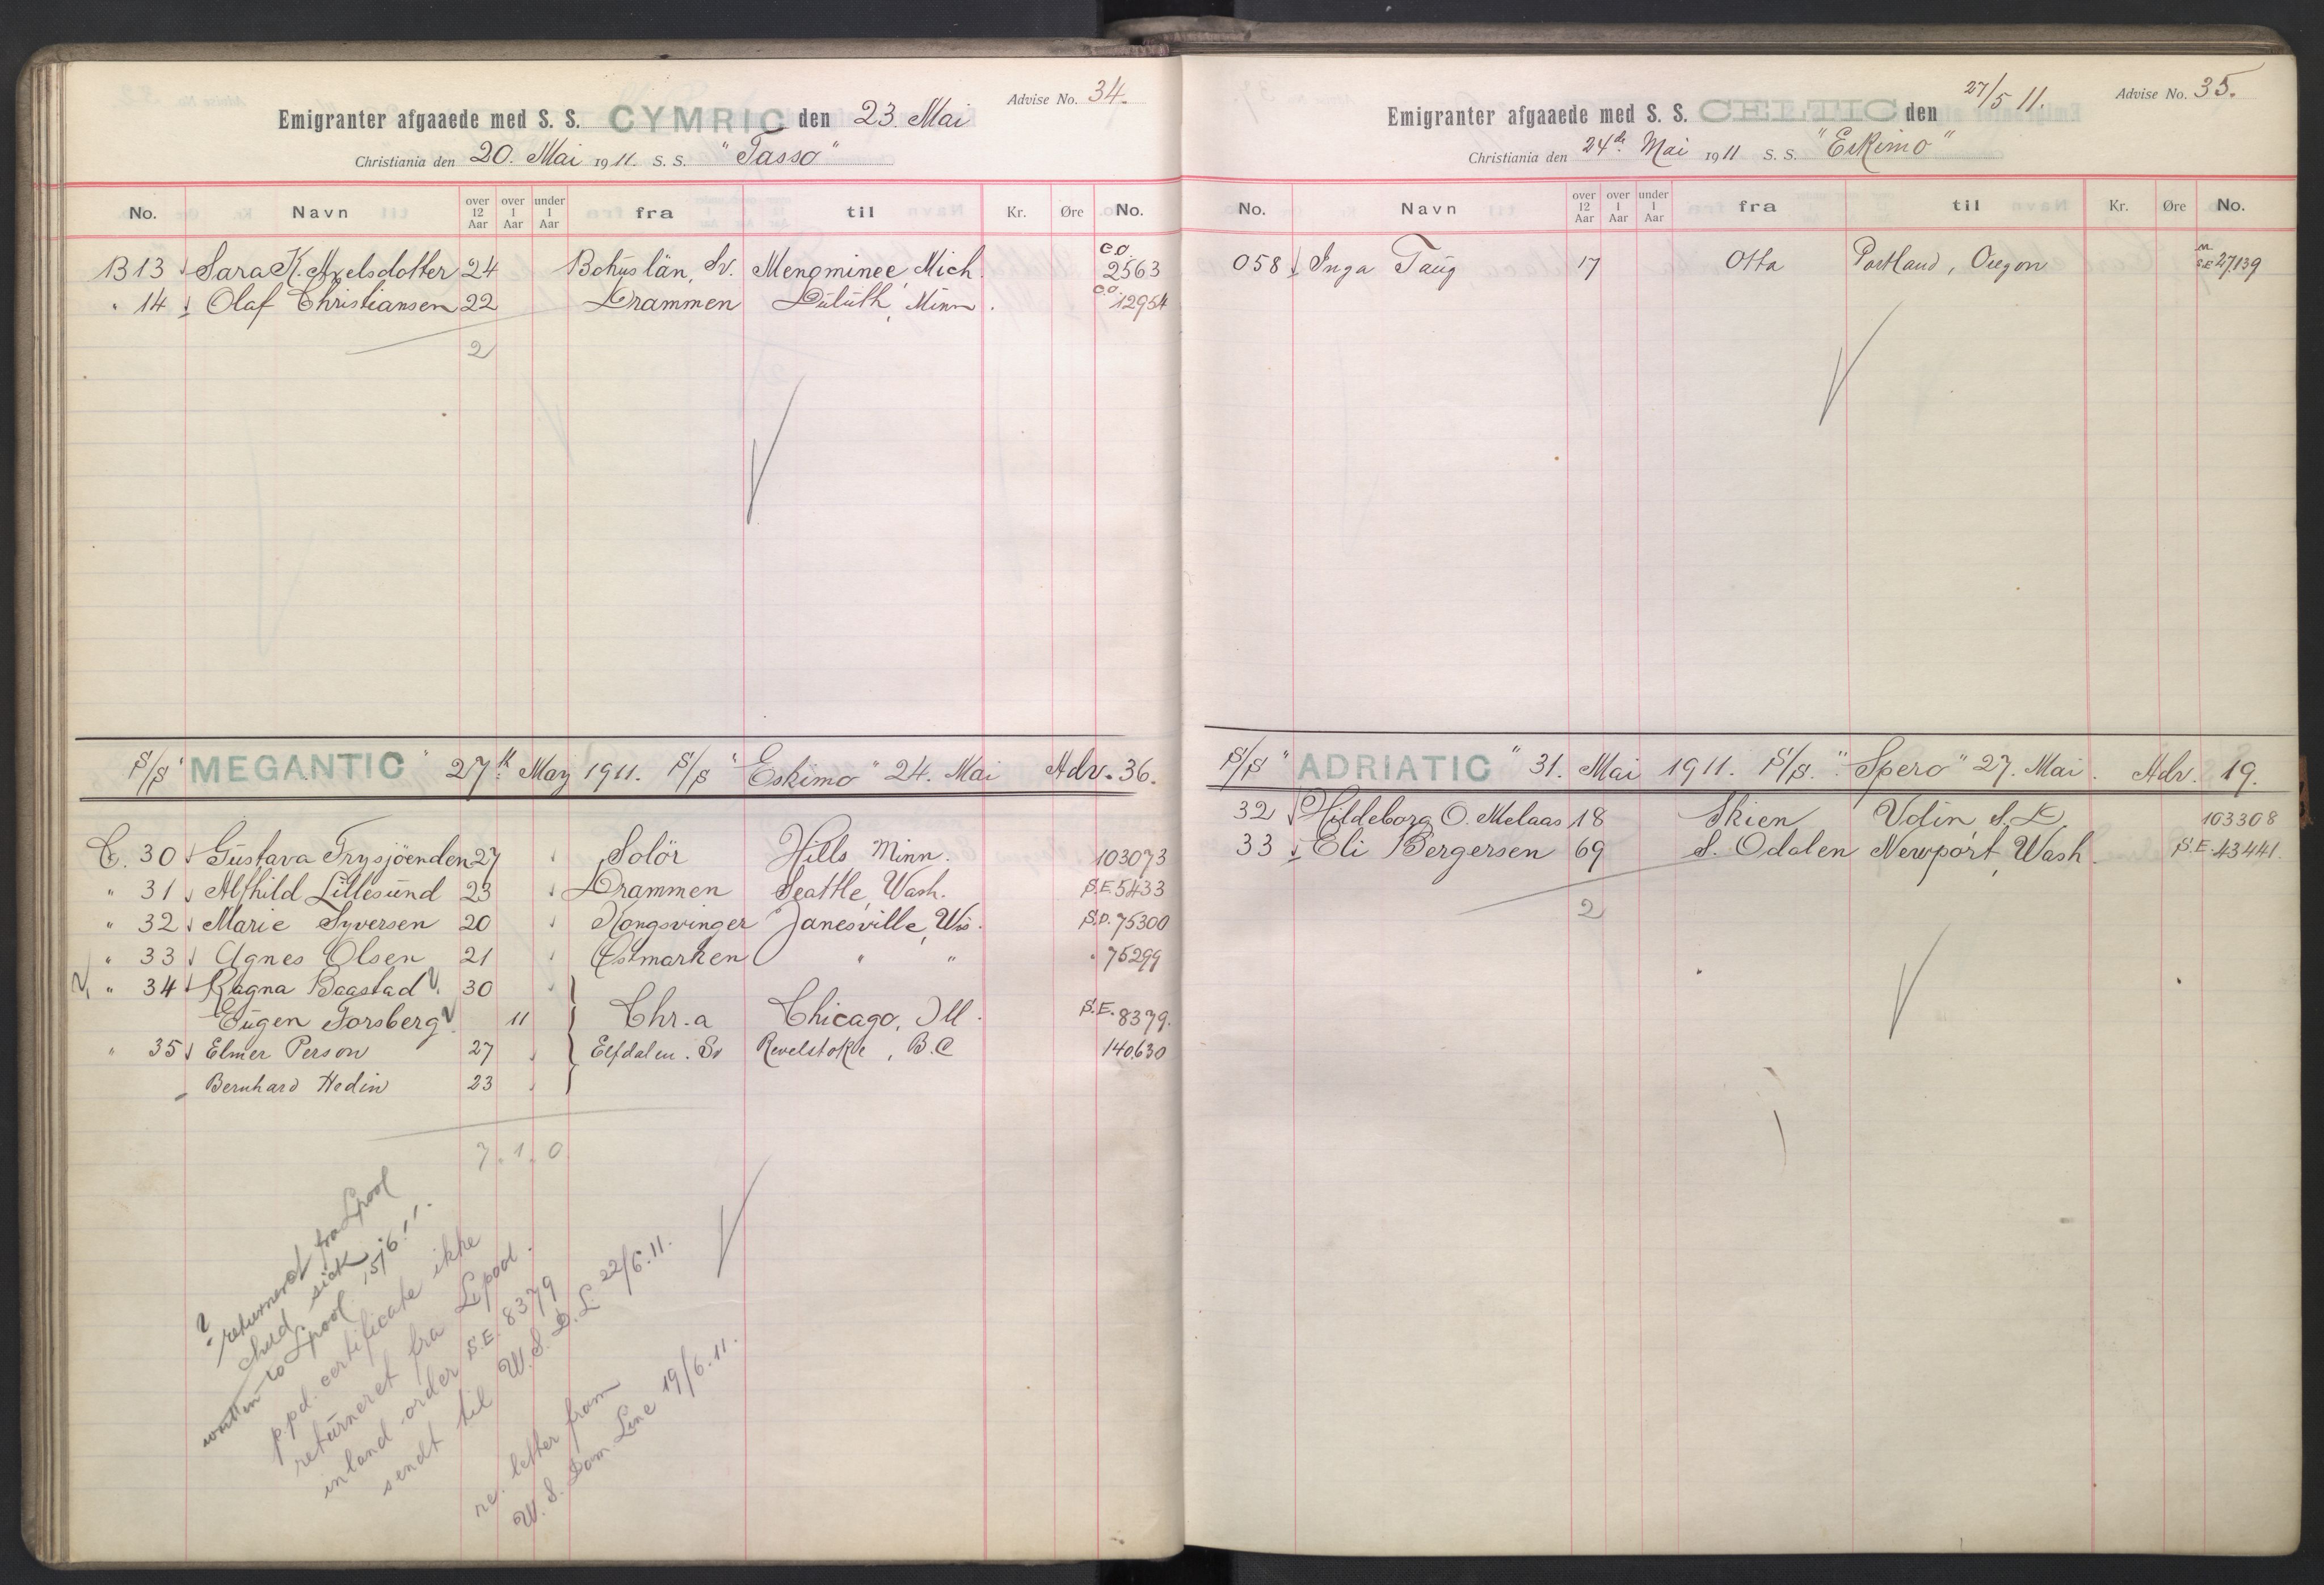 Advise No. 34.
Emigranter afgaaede med S. S. CYMRIC den 23. Mai
Christiania den 20. Mai 1911. S. S. "Tasso"
No. Navn over 12 Aar over 1 Aar under 1 Aar fra til Kr. Øre No.
B 13 Sara K. Axelsdotter 24 Bohuslän, Sv. Menominee, Mich. C.O. 2563
" 14 Olaf Christiansen 22 Drammen Duluth, Minn. C.O. 12954
2
S/S "MEGANTIC" 27th May 1911. S/S "Eskimo" 24. Mai Adv. 36.
C. 30 Gustava Trysjöenden 27 Solör Hills Minn. 103073
" 31 Alfhild Lillesund 23 Drammen Seattle, Wash. S.E. 5433
" 32 Marie Syversen 20 Kongsvinger Janesville, Wis. S.D. 75300
" 33 Agnes Olsen 21 Østmarken " " " 75299
" 34 Ragna Baastad 30
Eugen Forsberg 11 Chr.a Chicago, Ill. S.E. 8379.
" 35 Elmer Person 27 Elfdalen. Sv Revelstoke, B.C 140630
Bernhard Hedin 23
7. 1. 0
returneret fra Lpool
child sick
written to Lpool 15/6 11.
p.pd. certificate ikke
returneret fra Lpool.
inland order S.E. 8379
sendt til W. S. D. L. 22/6. 11.
re. letter from
W. S. Dom Line 19/6. 11.
Advise No. 35.
Emigranter afgaaede med S. S. CELTIC den 27/5 11.
Christiania den 24de Mai 1911 S. S. "Eskimo"
No. Navn over 12 Aar over 1 Aar under 1 Aar fra til Kr. Øre No.
058 Inga Taug 17 Otta Portland, Oregon S.E 27139
S/S "ADRIATIC" 31. Mai 1911. S/S. "Spero" 27. Mai. Adv. 19.
32 Hildeborg O. Melaas 18 Skien Udin S. D. 103308
33 Eli Bergersen 69 S. Odalen Newport, Wash. S.E. 43441.
2